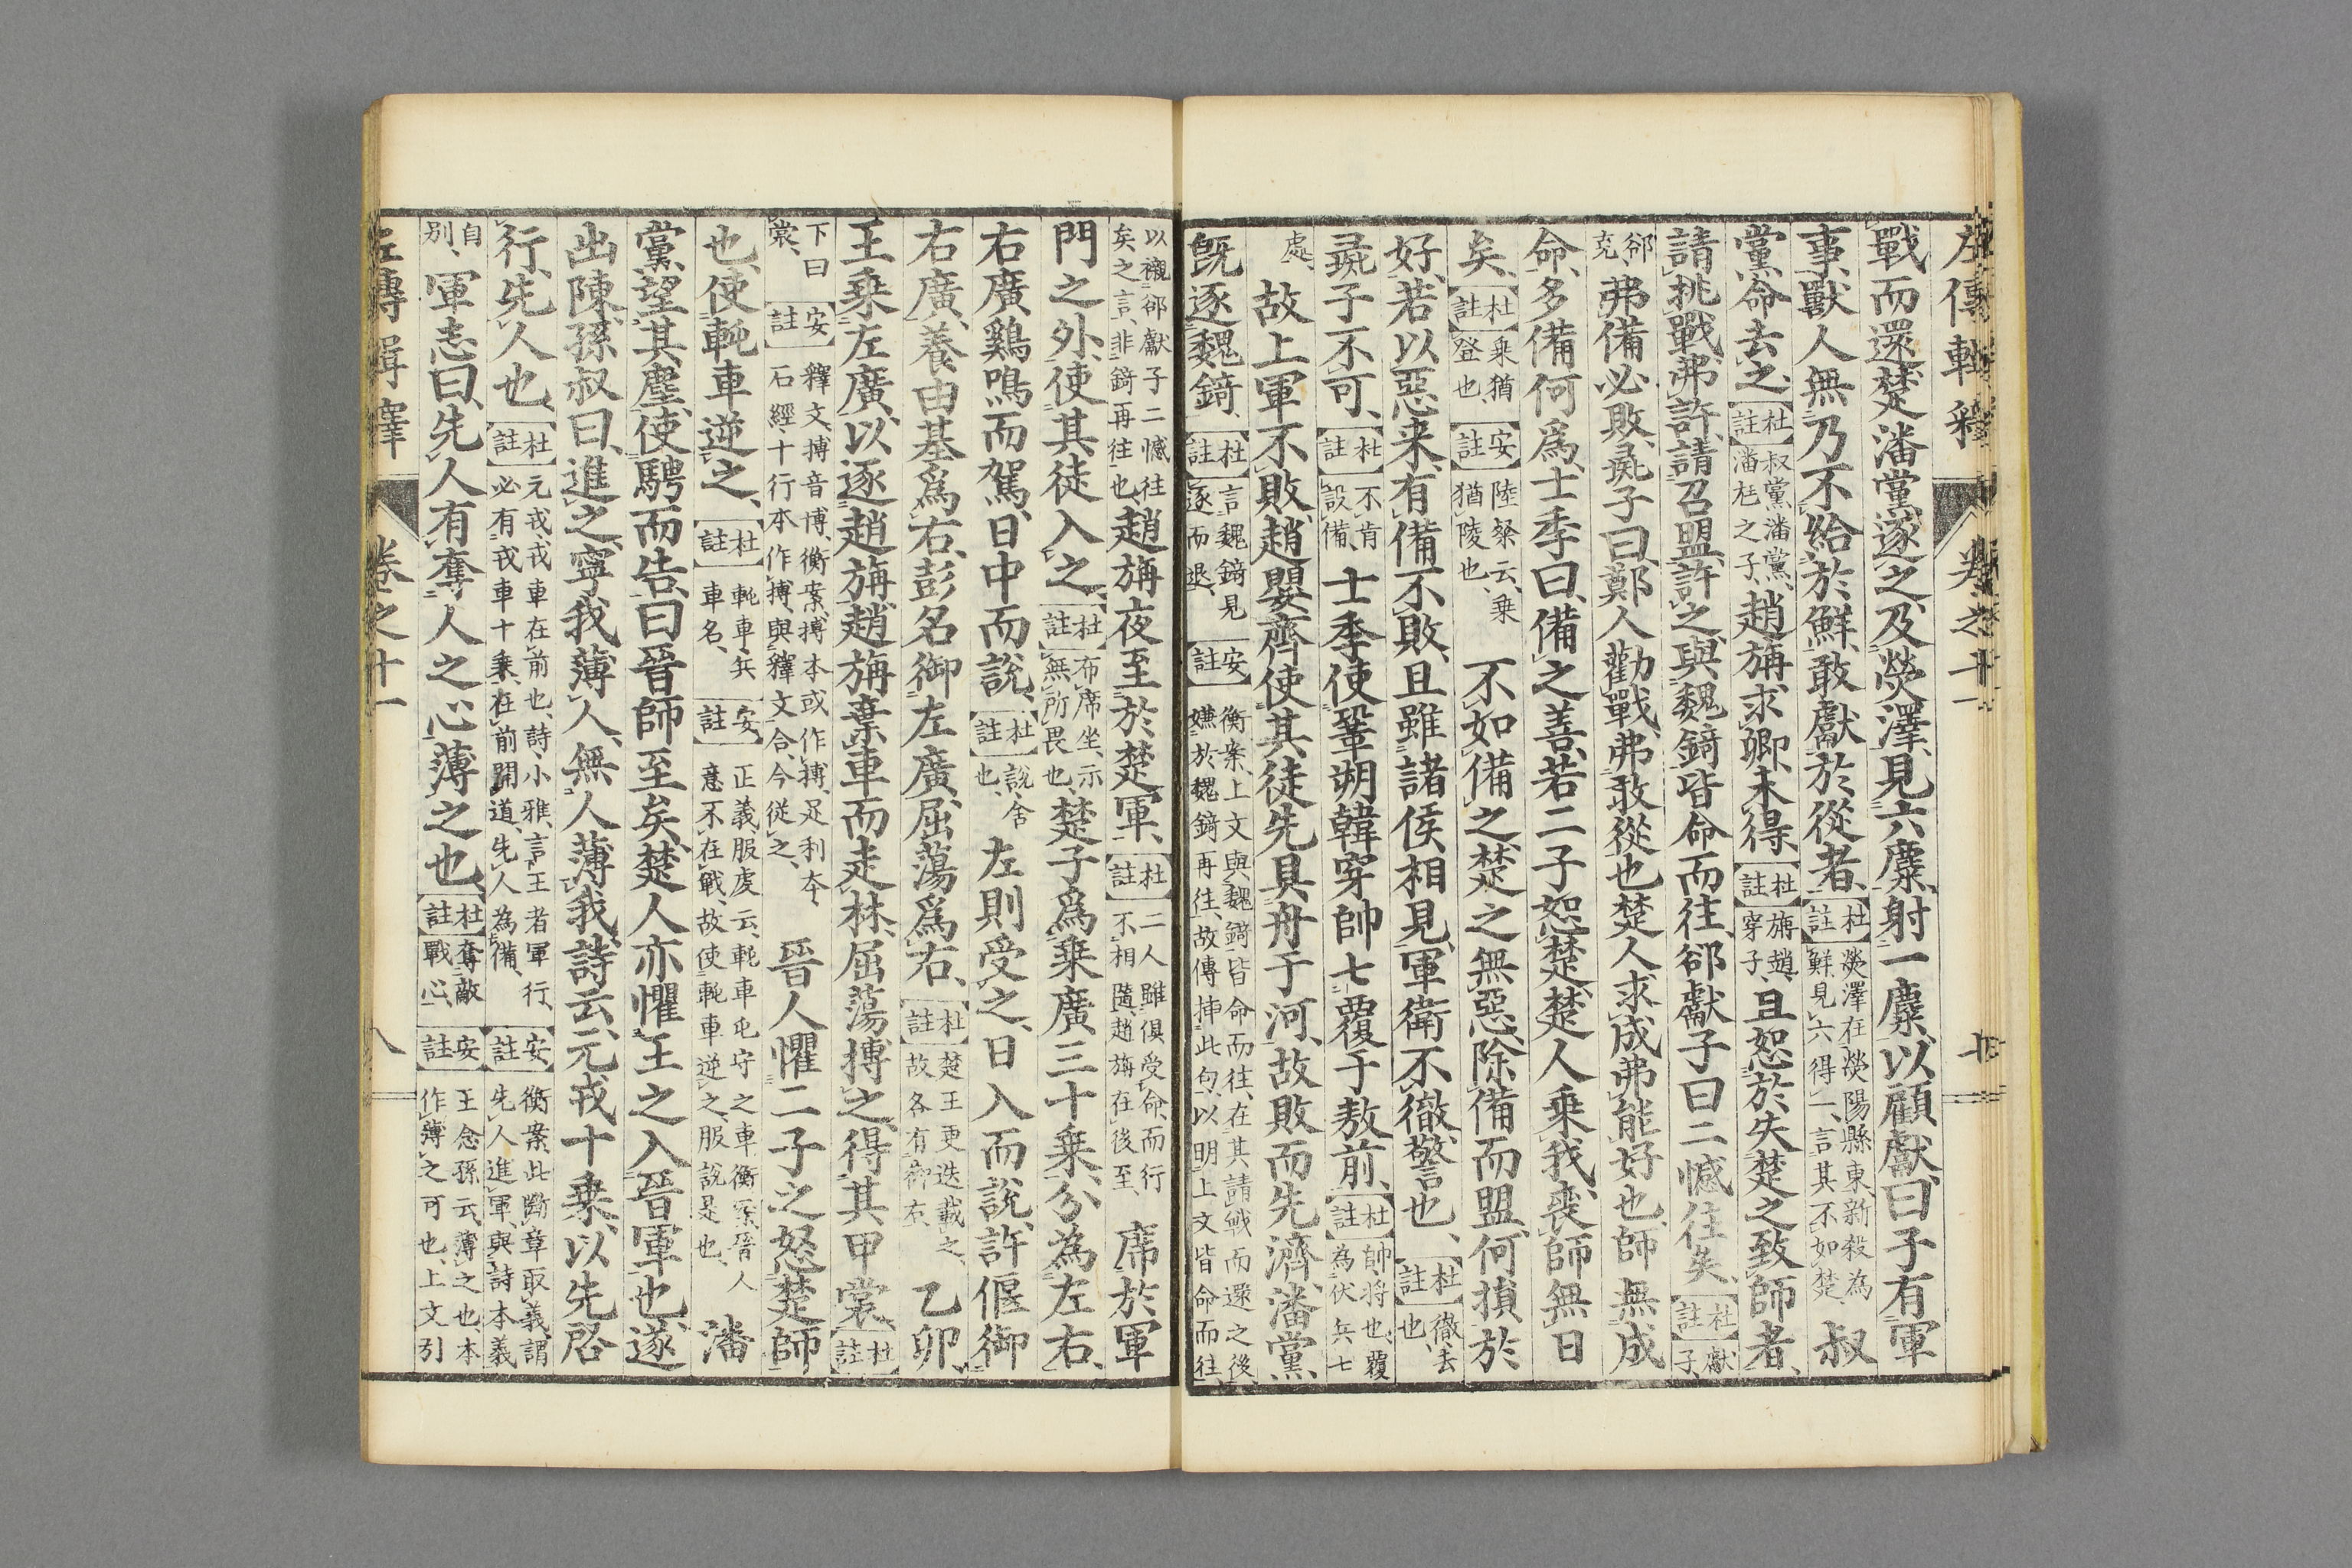 左傳輯釋
卷之十一
戰而還、楚潘黨逐之、及熒澤、見六麋、射一麋、以顧獻、曰、子有軍
事、獸人無乃不給於鮮、敢獻於從者、【杜註】熒澤在熒陽縣東、新殺為鮮、見六得一、言其不如楚、叔
黨命去之、【杜註】叔黨、潘黨、潘尫之子、趙旃求卿、未得、【杜註】旃、趙穿子、且怒於失楚之致師者、
請挑戰、弗許、請召盟、許之、與魏錡皆命而往、郤獻子曰、二憾往矣、【杜註】獻子、
郤克、弗備必敗、彘子曰、鄭人勸戰、弗敢從也、楚人求成、弗能好也、師無成
命、多備何爲、士季曰、備之善、若二子怒楚、楚人乘我、喪師無日
矣、【杜註】乘猶登也、【安註】陸粲云、乘猶陵也、不如備之、楚之無惡、除備而盟、何損於
好、若以惡來、有備不敗、且雖諸侯相見、軍衛不徹、警也、【杜註】徹、去也、
彘子不可、【杜註】不肯設備、士季使鞏朔韓穿帥七覆于敖前、【杜註】帥、將也、覆為伏兵七
處、故上軍不敗、趙嬰齊使其徒先具舟于河、故敗而先濟、潘黨
旣逐魏錡、【杜註】言魏錡見逐而退、【安註】衡案、上文與魏錡皆命而往、在其請戰而還之後、嫌於魏錡再往、故傳挿此句、以明上文皆命而往、
以襯郤獻子二憾往矣之言、非錡再往也、趙旃夜至於楚軍、【杜註】二人雖俱受命、而行不相隨、趙旃在後至、席於軍
門之外、使其徒入之、【杜註】布席坐、示無所畏也、楚子爲乘廣三十乘、分為左右、
右廣鷄鳴而駕、日中而說、【杜註】說、舍也、左則受之、日入而說、許偃御
右廣、養由基爲右、彭名御左廣、屈蕩爲右、【杜註】楚王更迭載之、故各有御右、乙卯、
王乘左廣、以逐趙旃、趙旃棄車而走林、屈蕩搏之、得其甲裳、【杜註】
下曰裳、【安註】釋文、搏音博、衡案、搏本或作摶、足利本、石經、十行本作搏、與釋文合、今從之、晉人懼二子之怒楚師
也、使軘車逆之、【杜註】軘車、兵車名、【安註】正義、服虔云、軘車屯守之車、衡案、晉人意不在戰、故使軘車逆之、服說是也、潘
黨望其塵、使騁而告曰、晉師至矣、楚人亦懼王之入晉軍也、遂
出陳、孫叔曰、進之、寧我薄人、無人薄我、詩云、元戎十乘、以先啓
行、先人也、【杜註】元戎、戎車在前也、詩小雅、言王者軍行、必有戎車十乘、在前開道、先人為備、【安註】衡案、此斷章取義、謂先人進軍、與詩本義
自別、軍志曰、先人有奪人之心、薄之也、【杜註】奪敵戰心、【安註】王念孫云、薄之也、本作薄之可也、上文引
左傳輯釋
卷之十一
八